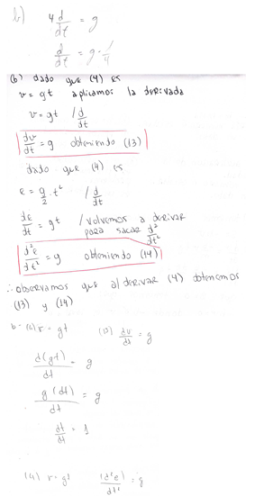 b) 4 d/dt = g
d/dt = g · 1/4
(b) dado que (4) es
v = gt aplicamos la derivada
v = gt / d/dt
dv/dt = g obteniendo (13)
dado que (4) es
e = g/2 t² / d/dt
de/dt = gt / volvemos a derivar
para sacar d²/dt²
d²e/dt² = g obteniendo (14)
∴ observamos que al derivar (4) obtenemos
(13) y (14)
d(gt)/dt = g
g(dt)/dt = g
dt/dt = 1